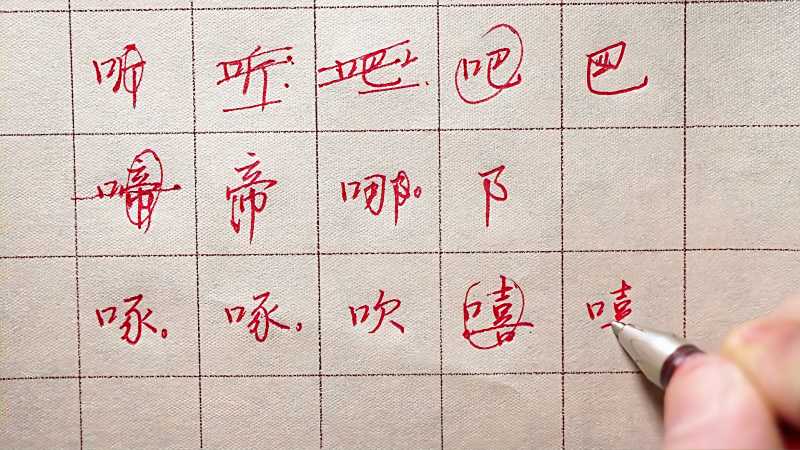 听 听 吧 吧 巴
啼 帝 哪 阝
啄 啄 吹 嘻